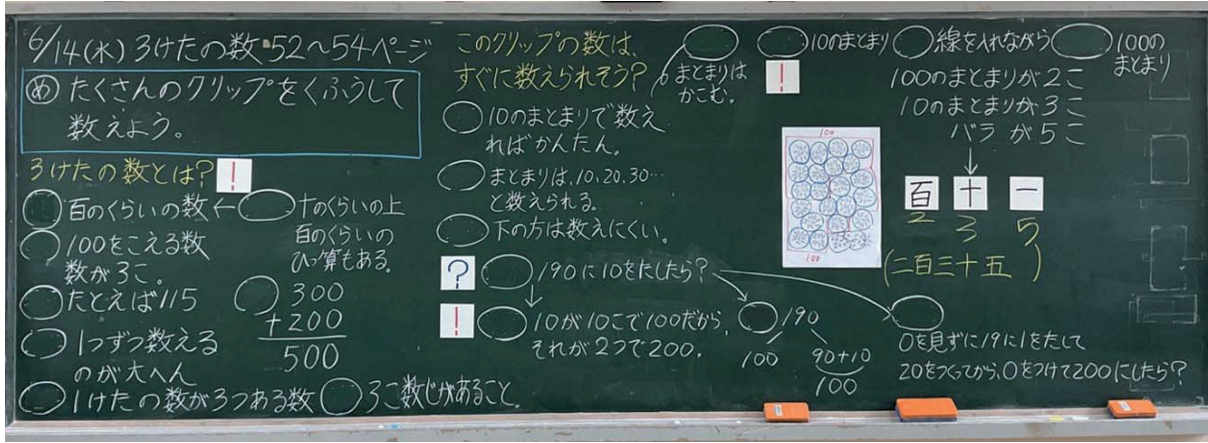 6/14(水) 3けたの数 52～54ページ
め たくさんのクリップをくふうして
数えよう。
3けたの数とは? !
百のくらいの数←
十のくらいの上
百のくらいの
ひっ算もある。
100をこえる数
数が3こ。
たとえば115
300
+200
500
1つずつ数える
のが大へん
1けたの数が3つある数
3こ数じがあること。
このクリップの数は、
すぐに数えられそう?
10のまとまりで数え
ればかんたん。
まとまりは、10、20、30…
と数えられる。
下の方は数えにくい。
? 190に10をたしたら?
! 10が10こで100だから、
それが2つで200。
まとまりは
かこむ。
10のまとまり
!
線を入れながら
100の
まとまり
100のまとまりが2こ
10のまとまりが3こ
バラ が5こ
100
100
百 十 一
2 3 5
(二百三十五)
190
100 90+10
100
0を見ずに19に1をたして
20をつくってから、0をつけて200にしたら?